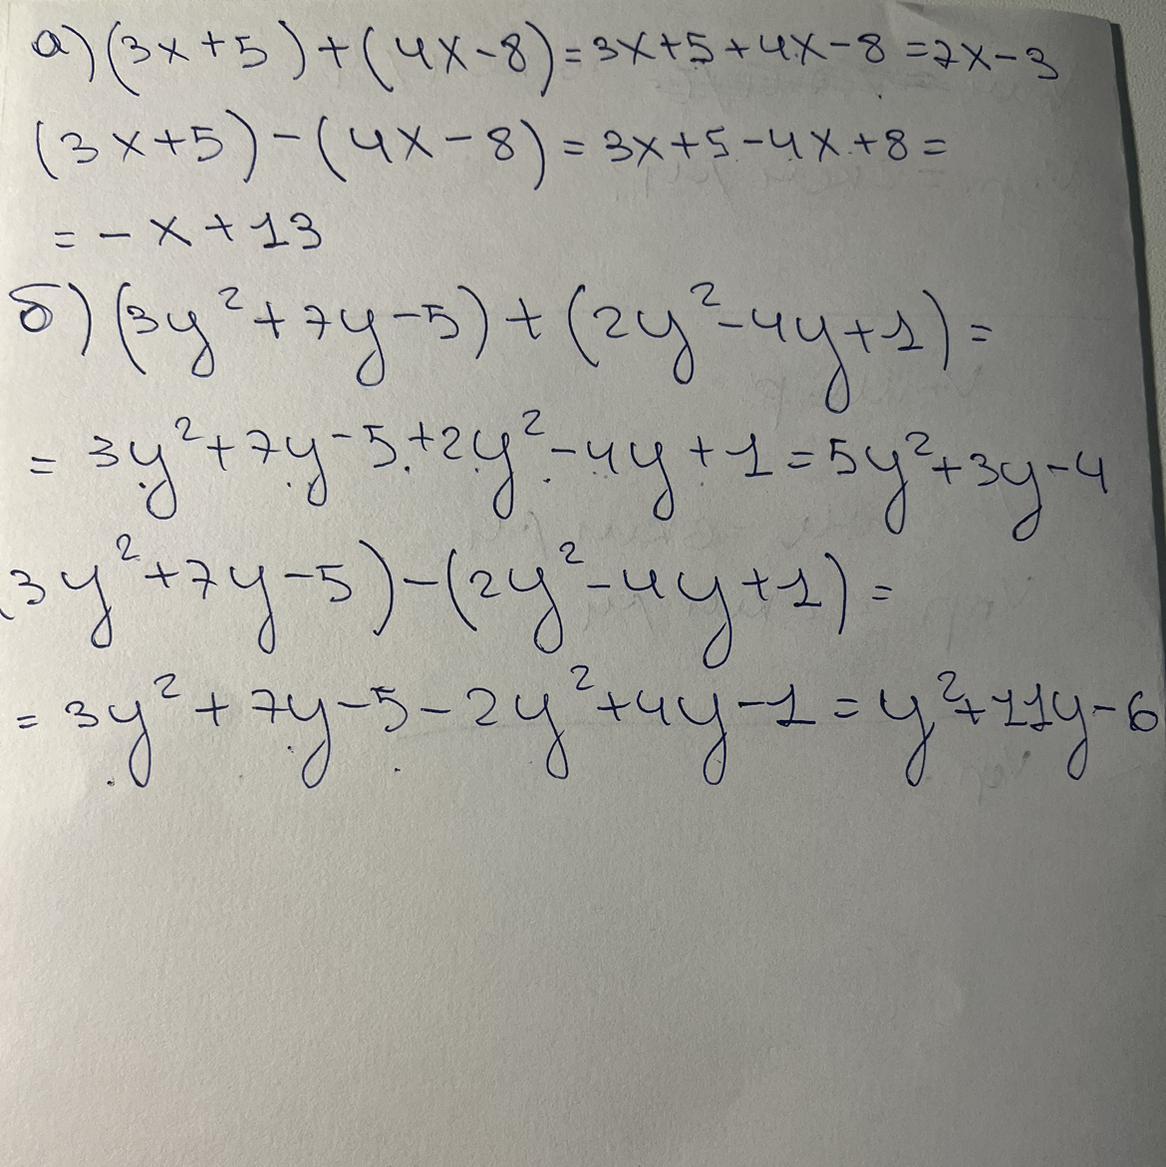 а) (3x+5)+(4x-8)=3x+5+4x-8=7x-3
(3x+5)-(4x-8)=3x+5-4x+8=
=-x+13
б) (3y²+7y-5)+(2y²-4y+1)=
=3y²+7y-5+2y²-4y+1=5y²+3y-4
(3y²+7y-5)-(2y²-4y+1)=
=3y²+7y-5-2y²+4y-1=y²+11y-6